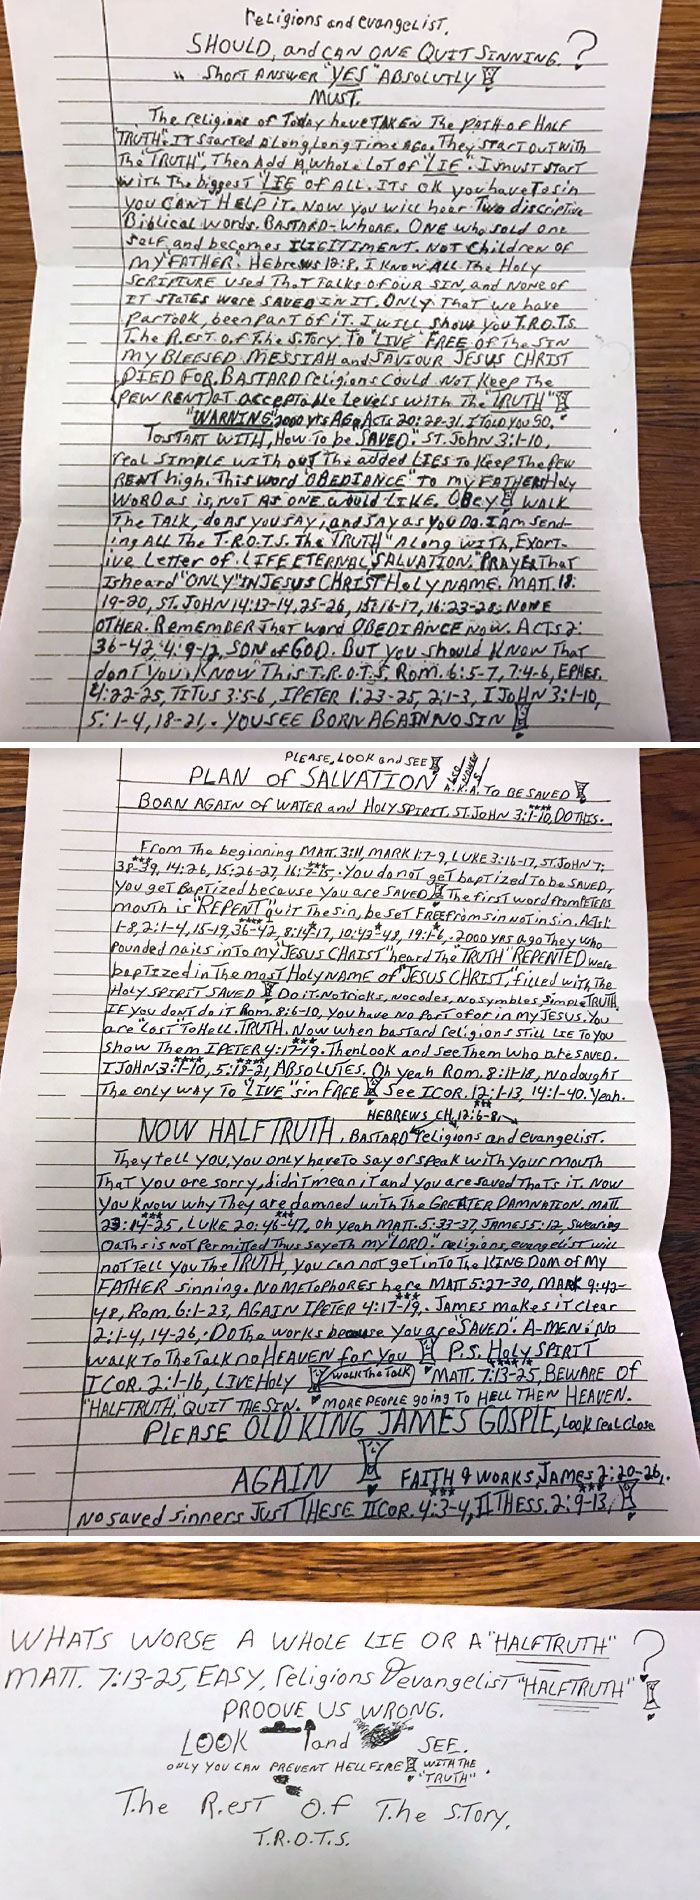 religions and evangelist.
SHOULD, and CAN ONE QUIT SINNING. ?
" Short ANSWER "YES" ABSOLUTLY
MUST.
The religions of Today have TAKEN The PATH OF HALF
"TRUTH". IT Started A Long, Long Time Ago. They START OUT With
The "TRUTH". Then Add A Whole Lot of "LIE". I must start
with The biggest "LIE" of ALL. ITS OK you have To sin
you CAN'T HELP iT. NOW you will hear Two discriptive
Biblical words. BASTARD-WHORE. ONE who sold one
self and becomes ILIGITIMENT. NOT Children of
my "FATHER". Hebrews 12:8. I KNOW ALL The Holy
SCRIPTURE used That TALKS OF OUR SIN, and NONE of
IT STATES were SAVED IN IT. ONLY That we have
Partook, been PART OF iT. I WILL Show you T.R.O.T.S.
T.he R.EST O.f T.he S.Tory. To "LIVE" FREE OF The SIN
MY BLEESED MESSIAH and SAVIOUR JESUS CHRIST
DIED FOR. BASTARD religions COULD NOT Keep The
(PEW RENT) AT acceptable Levels with The "TRUTH"
"WARNING" 2000 yrs AGo, Acts 20:28-31. I TOLD YOU SO.
To START WITH, How To be SAVED." ST. John 3:1-10.
real SIMPLE WITH OUT The added LIES To Keep The PEW
RENT high. This word "OBEDIANCE" To my FATHERS Holy
WORD as is, NOT AS ONE would LIKE. OBEY WALK
The TALK, do AS YOU SAY, and SAY as YOU DO. I Am Send-
ing ALL The T.R.O.T.S. The TRUTH" Along with, Exort-
ive Letter of LIFE ETERNAL "SALVATION." PRAYER That
Is heard "ONLY" IN JESUS CHRIST HoLy NAME. MATT. 18:
19-20, ST. JOHN 14:13-14, 25-26, 15:16-17, 16:23-28; NONE
OTHER. RemEMBER That word OBEDIANCE NOW. ACTS 2:
36-42, 4:9-12, SON of GOD. BUT you SHOULD KNOW That
don't you. KNOW This T.R.O.T.S. Rom. 6:5-7, 7:4-6, EPHES.
4:22-25, TITUS 3:5-6, I PETER 1:23-25, 2:1-3, I JOHN 3:1-10,
5:1-4, 18-21,. YOU SEE BORN AGAIN NO SIN
PLEASE, LOOK and SEE
PLAN of SALVATION
A.K.A. TO BE SAVED
BORN AGAIN of WATER and HOLY SPIRIT. ST. JOHN 3:1-10, DO THIS.
From The beginning MATT. 3:11, MARK 1:7-9, LUKE 3:16-17, ST. JOHN 7:
38-39, 14:26, 15:26-27, 16:7-15,. You do not get baptized To be SAVED,
you get Baptized because you are SAVED The first word From PETERS
mouth is "REPENT" quit The sin, be set FREE from sin not in sin. Acts 1:
1-8, 2:1-4, 15-19, 36-42, 8:14-17, 10:43-48, 19:1-6,. 2000 yrs ago They who
Pounded nails into my "JESUS CHRIST" heard The "TRUTH" REPENTED were
baptized in The most HOLY NAME of "JESUS CHRIST," filled with The
HOLY SPIRIT SAVED Do iT. No tricks, no codes, no symbles, simple TRUTH.
IF you don't do iT Rom. 8:6-10, you have no Part of or in my JESUS. You
are "LOST" To HeLL. TRUTH. Now when bastard religions STILL LIE To you
show Them I PETER 4:17-19. Then Look and see Them who are SAVED.
I JOHN 3:1-10, 5:18-21, ABSOLUTES. Oh yeah Rom. 8:11-18, no dought
The only way To "LIVE" sin FREE See I COR. 12:1-13, 14:1-40. Yeah.
HEBREWS CH. 12:6-8,
NOW HALF TRUTH, BASTARD religions and evangelist.
They tell you, you only have To say or speak with your mouth
That you are sorry, didn't mean it and you are saved Thats iT. Now
you Know why They are damned with The GREATER DAMNATION. MATT
23:14-25, LUKE 20:46-47, oh yeah MATT. 5:33-37, JAMES 5:12, Swearing
Oaths is not Permitted Thus sayeth my "LORD." religions, evangelist will
not tell you The TRUTH, you can not get in To The KING DOM of My
FATHER sinning. NO METOPHORES here MATT 5:27-30, MARK 9:42-
48, Rom. 6:1-23, AGAIN I PETER 4:17-19,. JAMES makes iT clear
2:1-4, 14-26,. DO The works because you are "SAVED". A-MEN; No
walk To The Talk no HEAVEN for you P.S. HOLY SPIRIT
I COR. 2:1-16, LIVE HOLY WALK THE TALK MATT. 7:13-25, BEWARE OF
"HALF TRUTH", QUIT THE SIN. MORE PEOPLE going TO HELL THEN HEAVEN.
PLEASE OLD KING JAMES GOSPLE, Look real close
AGAIN FAITH & WORKS, JAMES 2:20-26,.
No saved sinners JUST THESE II COR. 4:3-4, II THESS. 2:9-13,
WHATS WORSE A WHOLE LIE OR A "HALFTRUTH" ?
MATT. 7:13-25, EASY, religions & evangelist "HALFTRUTH"
PROOVE US WRONG.
LOOK and SEE.
ONLY YOU CAN PREVENT HELLFIRE WITH THE
"TRUTH".
T.he R.esT O.f T.he S.Tory.
T.R.O.T.S.